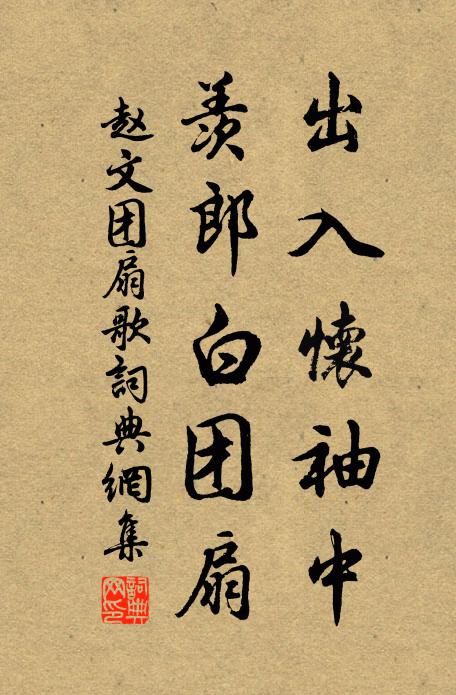 出入懷袖中
羨郎白团扇
赵文团扇歌詞典網集
詞典网印